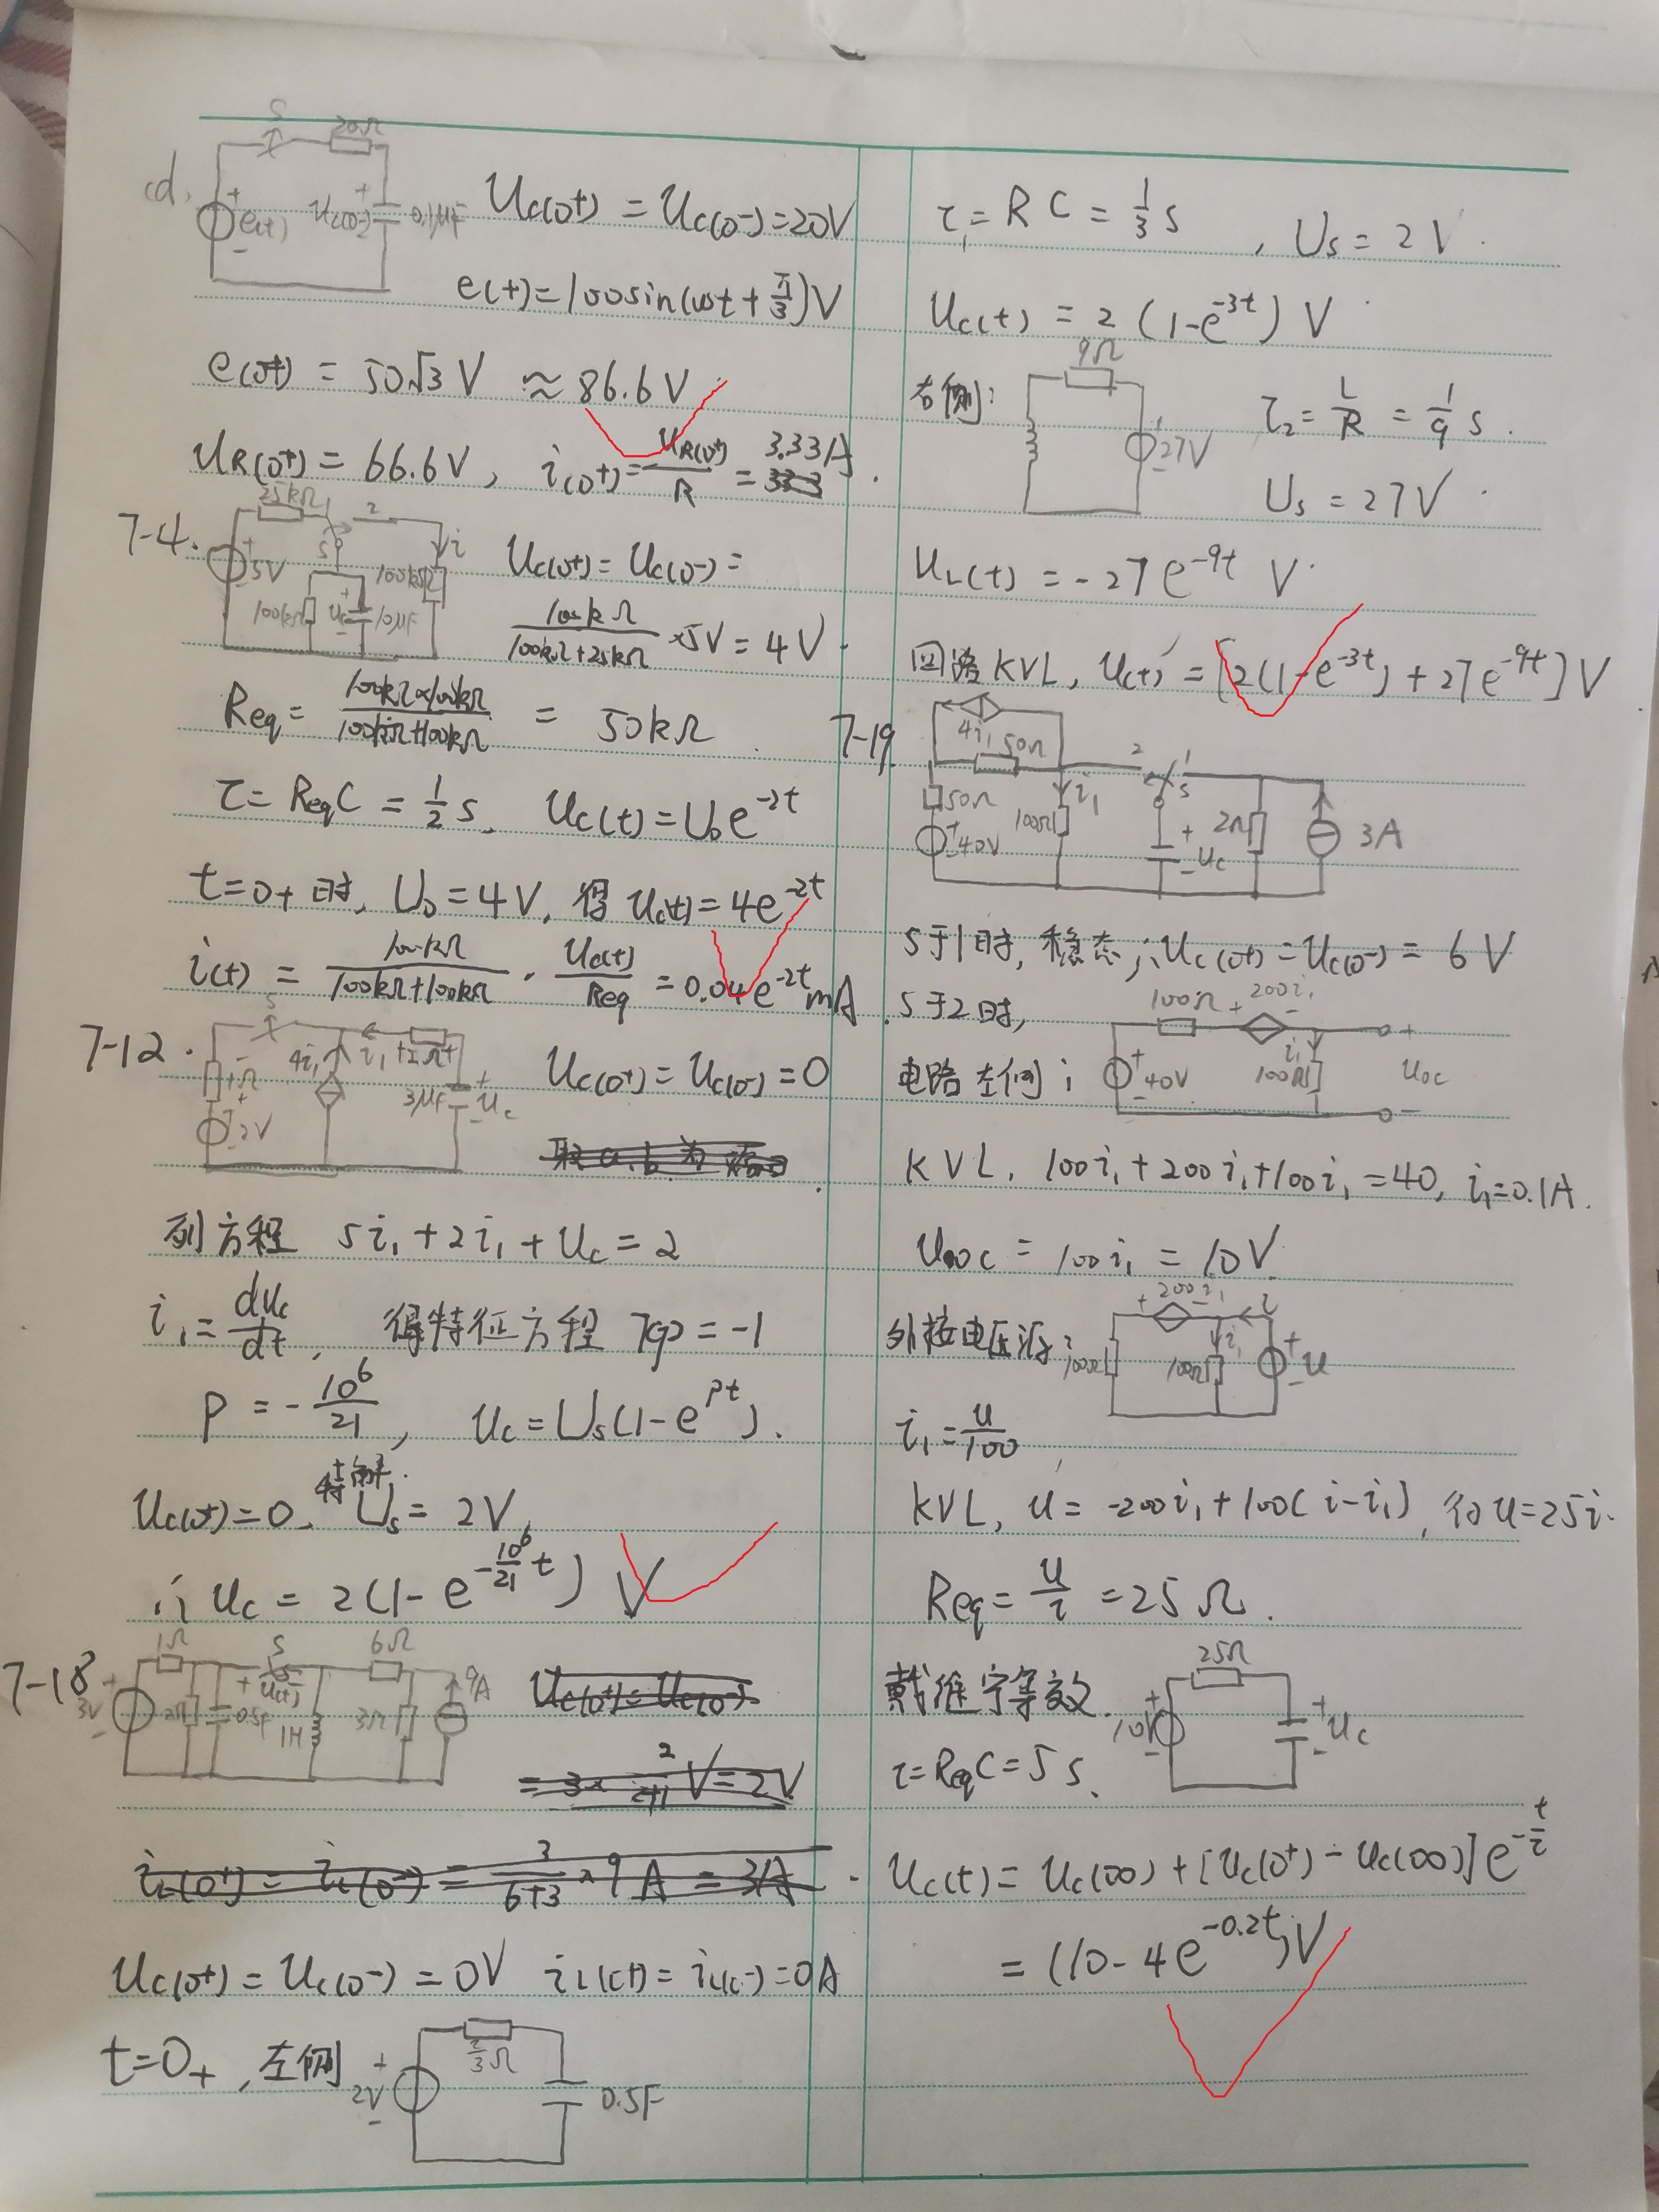 (d)
S
20Ω
+
e(t)
-
+
Uc(0-)
-
0.1μF
Uc(0+) = Uc(0-) = 20V
e(t) = 100sin(ωt + π/3) V
e(0+) = 50√3 V ≈ 86.6 V
UR(0+) = 66.6V, i(0+) = UR(0+)/R = 3.33A
7-4.
25kΩ
1
2
S
i
+
5V
-
100kΩ
+
Uc
-
10μF
100kΩ
Uc(0+) = Uc(0-) =
100kΩ/(100kΩ+25kΩ) ×5V = 4V.
Req = 100kΩ×100kΩ/(100kΩ+100kΩ) = 50kΩ.
τ = ReqC = 1/2 s. Uc(t) = U₀e^-2t
t=0+时, U₀ = 4V, 得 Uc(t) = 4e^-2t
i(t) = 100kΩ/(100kΩ+100kΩ) · Uc(t)/Req = 0.04e^-2t mA.
7-12.
S
1Ω
+
2V
-
4i₁
i₁
2Ω
3μF
+
Uc
-
Uc(0+) = Uc(0-) = 0
列方程 5i₁ + 2i₁ + Uc = 2
i₁ = duc/dt, 得特征方程 7cp = -1
P = -10⁶/21, Uc = Us(1-e^pt).
Uc(0+) = 0. 特解 Us = 2V,
∴ Uc = 2(1-e^(-10⁶/21 t)) V
7-18
1Ω
S
6Ω
+
3V
-
2Ω
0.5F
+
U(t)
-
1H
3Ω
9A
Uc(0+) = Uc(0-)
= 3× 2/(2+1) V = 2V
iL(0+) = iL(0-) = 3/(6+3) ×9 A = 3A
Uc(0+) = Uc(0-) = 0V iL(0+) = iL(0-) = 0A
t=0+, 左侧
+
2V
-
2/3 Ω
0.5F
τ₁ = RC = 1/3 s, Us = 2V.
Uc(t) = 2(1-e^-3t) V
右侧:
9Ω
+
27V
-
τ₂ = L/R = 1/9 s.
Us = 27V.
UL(t) = -27e^-9t V.
回路KVL, U(t) = [2(1-e^-3t) + 27e^-9t] V
7-19
4i₁
50Ω
50Ω
+
40V
-
100Ω
i₁
2
1
S
+
Uc
-
2Ω
3A
S于1时, 稳态, ∴ Uc(0+) = Uc(0-) = 6V
S于2时,
电路左侧:
100Ω
+ 200i₁ -
+
40V
-
i₁
100Ω
+
Uoc
-
KVL, 100i₁ + 200i₁ + 100i₁ = 40, i₁ = 0.1A.
Uoc = 100i₁ = 10V.
外接电压源:
+ 200i₁ -
i
100Ω
i₁
100Ω
+
u
-
i₁ = u/100,
KVL, u = -200i₁ + 100(i-i₁), 得 u = 25i.
Req = u/i = 25Ω.
戴维宁等效.
25Ω
+
10V
-
+
Uc
-
τ = ReqC = 5s.
Uc(t) = Uc(∞) + [Uc(0+) - Uc(∞)] e^-t/τ
= (10-4e^-0.2t) V